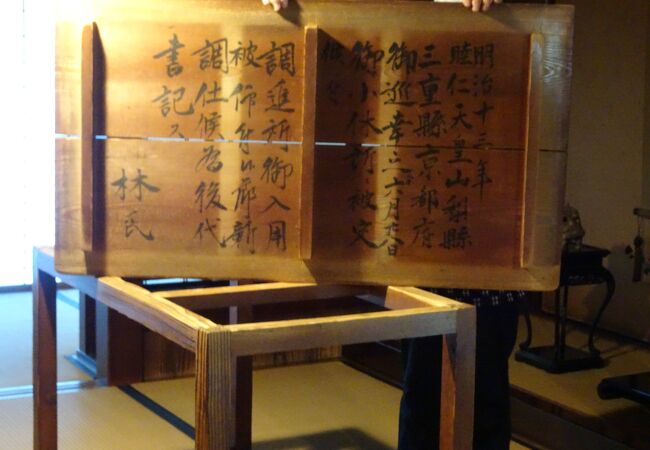 明治十三年
睦仁天皇山梨縣
三重縣京都府
御巡幸之六月廿八日
御小休所被定
調進所御入用
被仰
調仕候為後代
書記ス
林氏